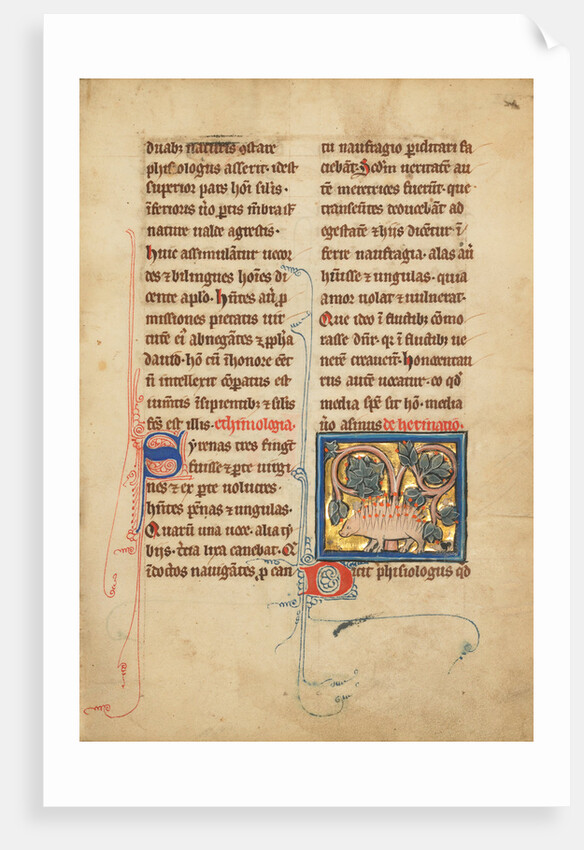 duabꝫ naturis ꝯstare
phisiologus asserit· idest
superior pars hoīs silis·
īferioris ūo ꝑtis mēbra st̄
nature ualde agrestis·
Huic assimulātur uecor
des ⁊ bilingues hoīes di
cente apl̄o· Hn̄tes aūt ꝓ
missiones pietatis uir
tutē eī abnegātes ⁊ ꝓpha
dauid· hō cū ī honore eēt
n̄ intellexit cōparatus est
iumētis īsipientibꝫ ⁊ silis
fcūs est illis· ethimologia·
Syrenas tres fingūt
fuisse ex ꝑte uirgi
nes ⁊ ex ꝑte uolucres·
hūtes pēnas ⁊ ungulas·
Quarū una uoce· alia tȳ
bijs· tc̄ia lira canebat· Q̄
īdoctos nauigātes ꝑ can
tū naufragio ꝑiclitari fa
ciebāt· Scdm̄ ueritatē au
tē meretrices fuerūt· que
transeūtes deducebāt ad
egestatē ⁊ hijs dicētur ī
ferre naufragia· alas aūt
hūisse ⁊ ungulas· quia
amor uolat ⁊ uulnerat·
Que ideo ī fluctibꝫ cōmo
rasse dn̄r· qꝛ ī fluctibꝫ ue
nerē creauerūt· Honocentau
rus autē uocatur· eo qd̓
media spē̄ sit hōis· media
ūo asinus de herinatio·
Dicit phisiologus qd̓